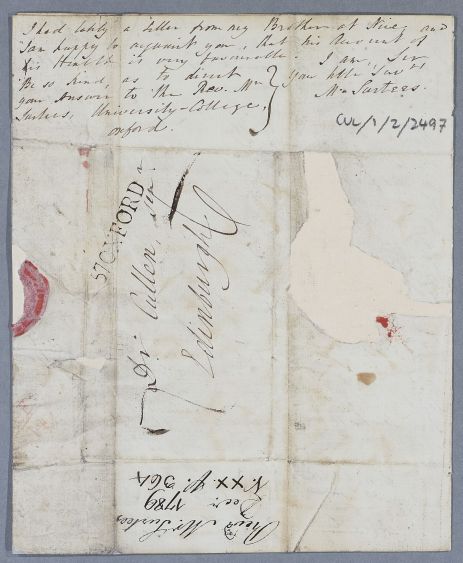 I had lately a letter from my Brother at Nice, and
I am happy to acquaint you, that his Account of
his Health is very favourable. I am, Sir
Be so kind, as to direct you hble Servt
your Answer to the Rev. Mr M: Surtees.
Surtees, University-College,
Oxford.
CUL/1/2/2497
57 OXFORD
Dr: Cullen,
Edinburgh
Revd. Mr. Surtees
Decr.
1789
N. XX p. 364